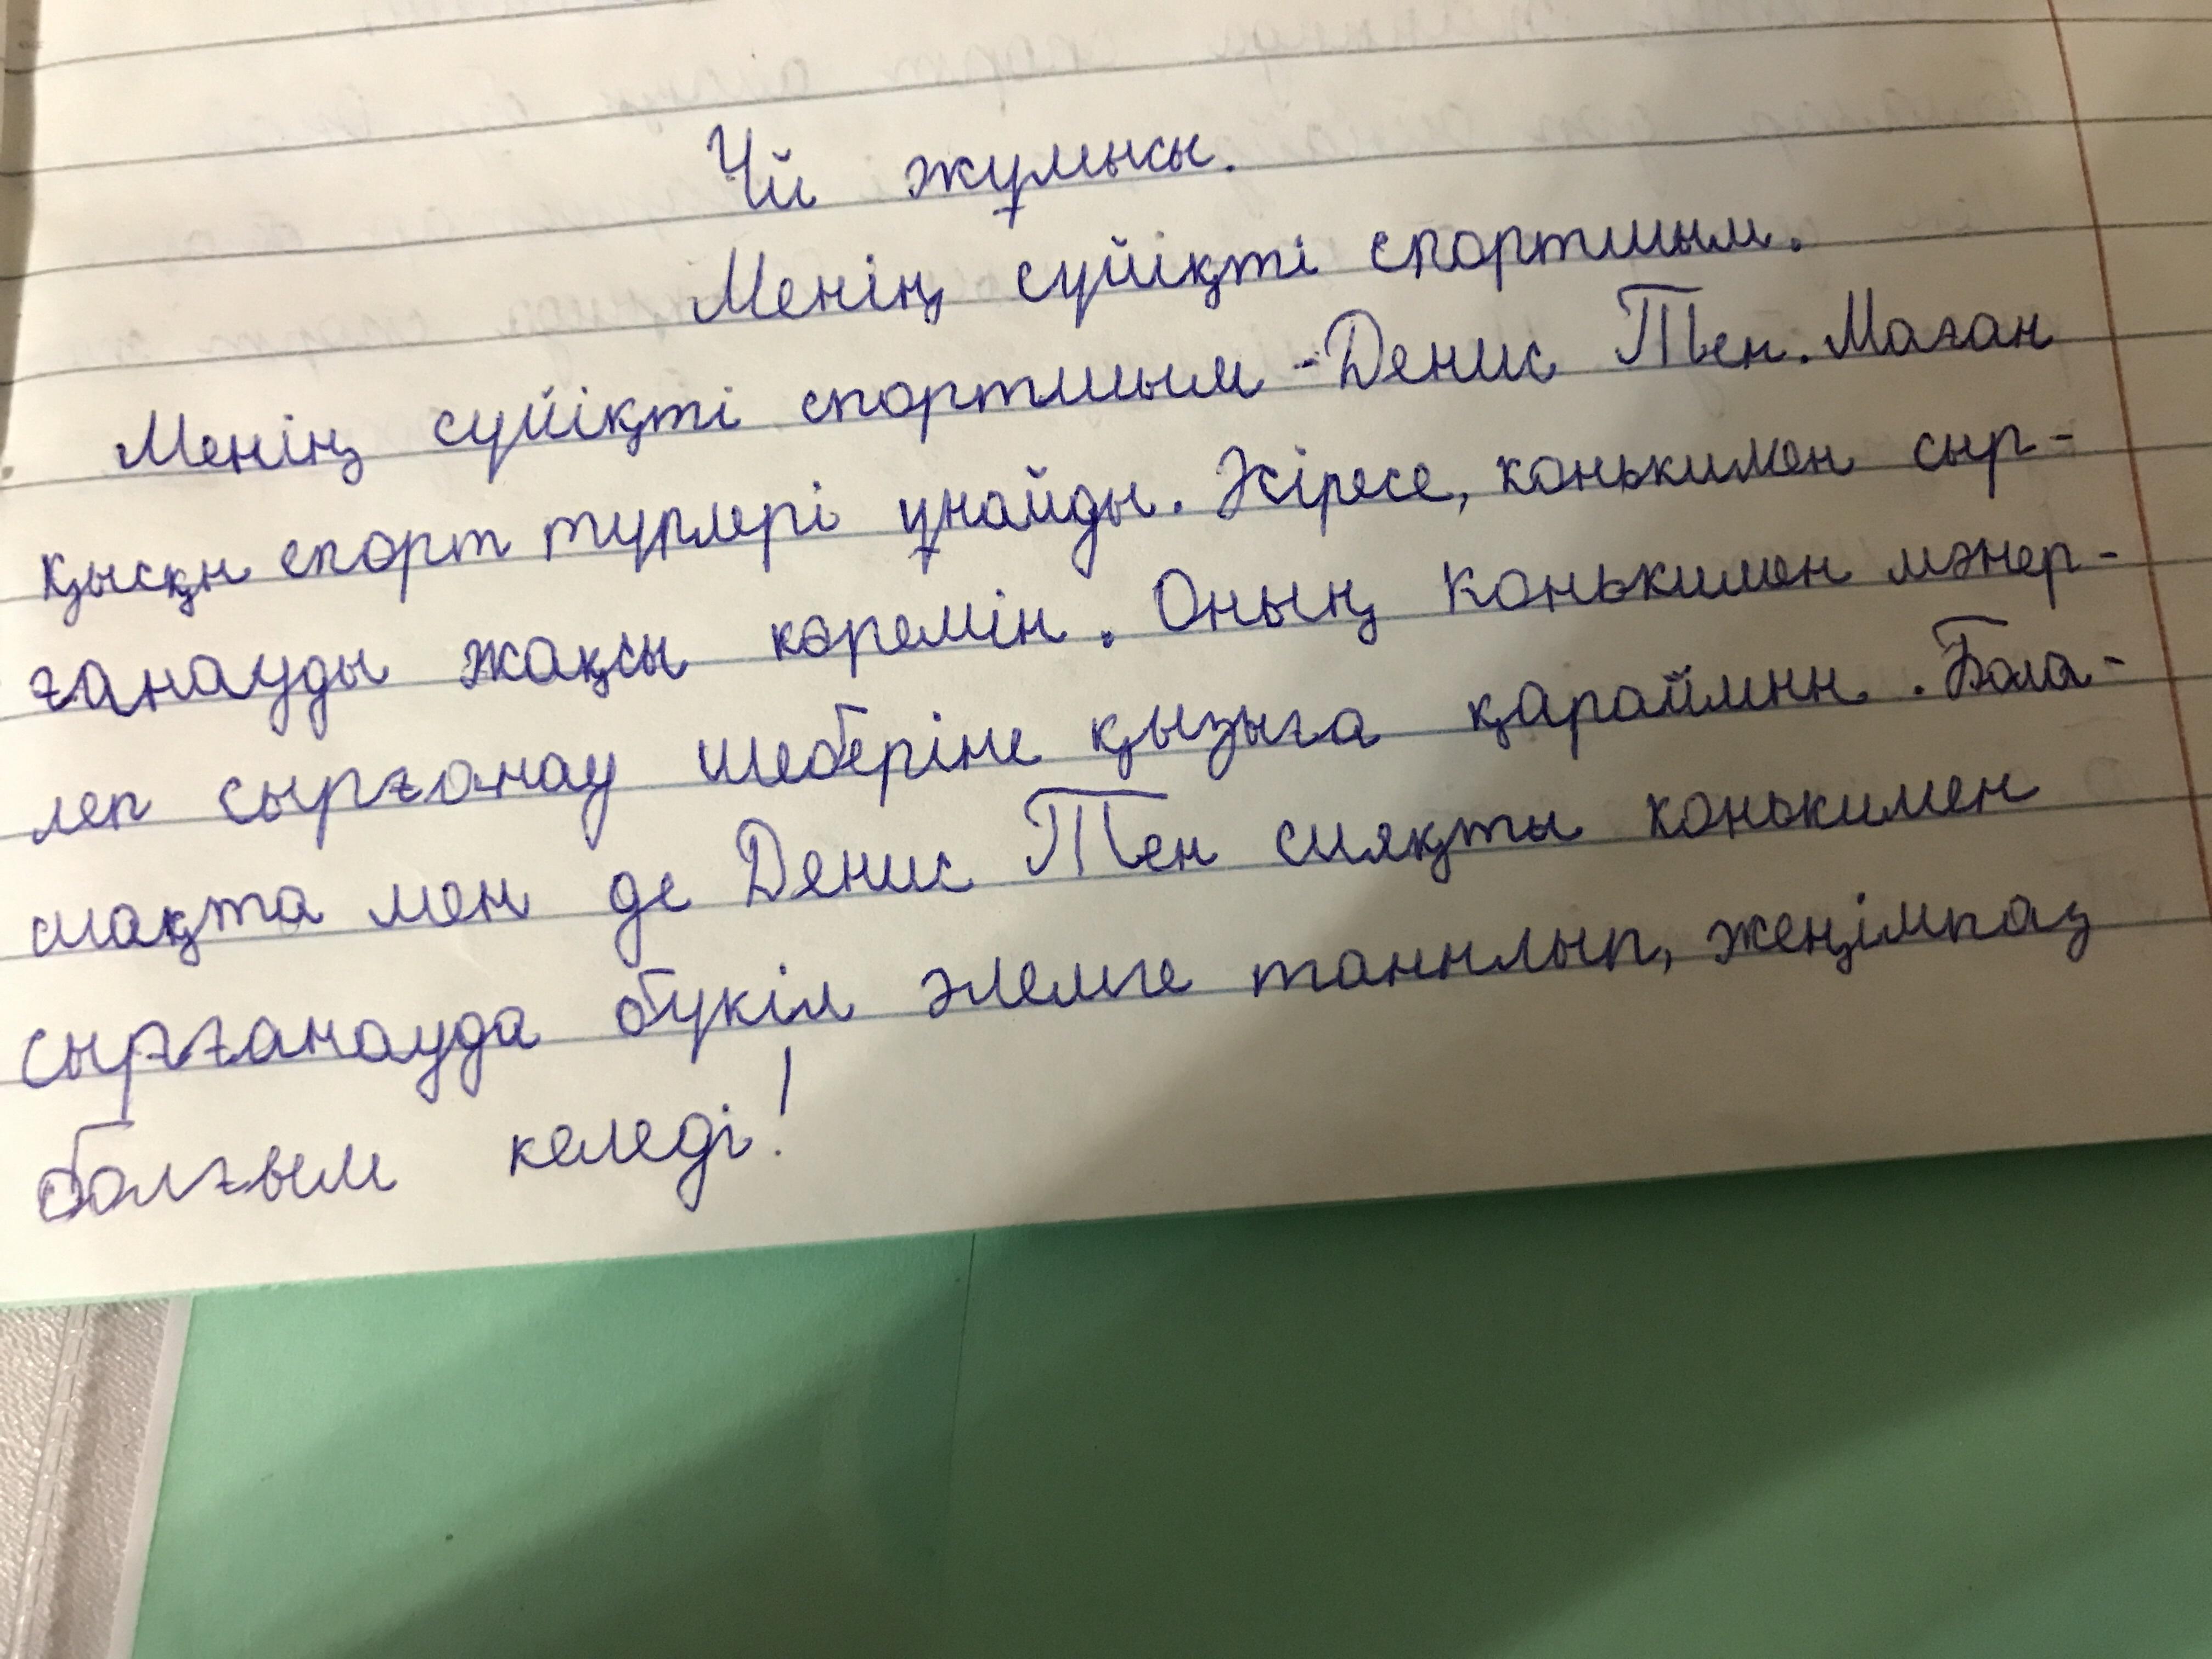 Үй жұмысы.
Менің сүйіқті спортшым.
Менің сүйіқті спортшым - Денис Тен. Маған
қысқн спорт түрлері ұнайды. Әсіресе, конькимен сыр-
ғанауды жақсы көремін. Оның конькимен мәнер-
леп сырғанау шеберіне қызыға қараймнн. Бола-
шақта мен де Денис Тен сияқты конькимен
сырғанауда бүкіл әлемге таннлып, жеңімпаз
болғым келеді!